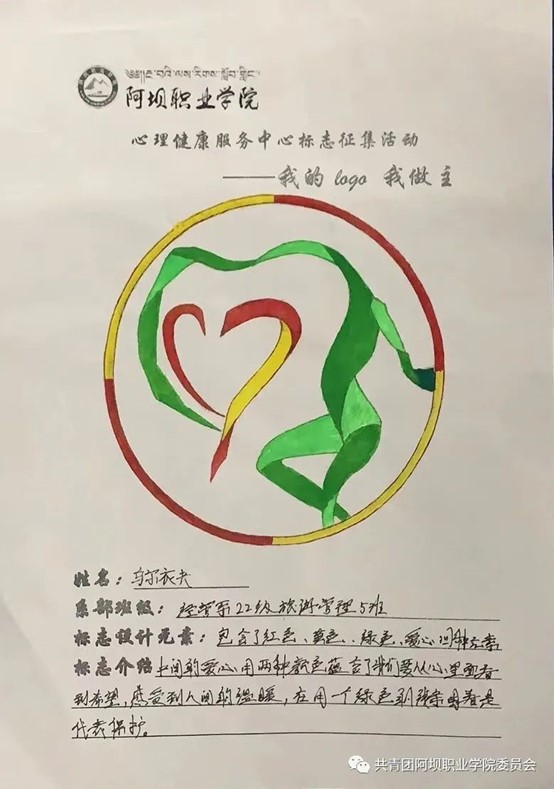 阿坝职业学院
心理健康服务中心标志征集活动
——我的 logo 我做主
姓名：乌尔衣夫
系部班级：经管系22级旅游管理5班
标志设计元素：包含了红色、黄色、绿色、爱心四种元素
标志介绍 中间的爱心用两种颜色蕴含了我们要从心里面看
到希望，感受到人间的温暖，在用一个绿色的
代表保护。
共青团阿坝职业学院委员会